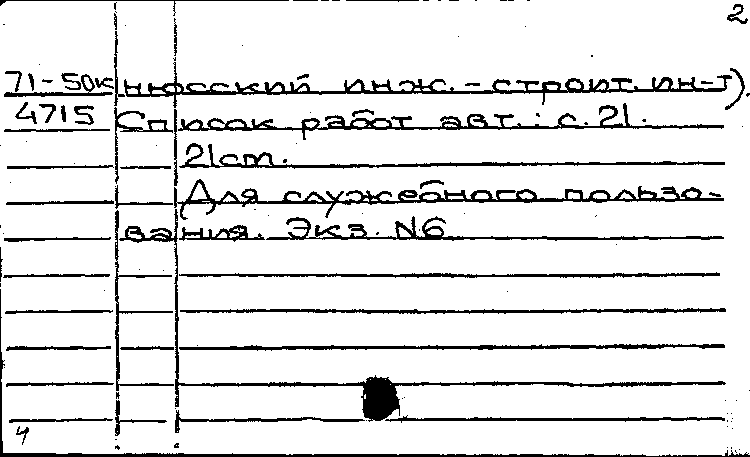 2
71-50к нюсский инж.-строит. ин-т).
4715 Список работ авт.: с. 21.
21см.
Для служебного пользо-
вания. Экз. N6
4